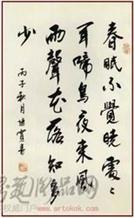 春眠不覺曉處々
聞啼鳥夜来風
雨聲花落知多
少
丙子秋月
www.artokok.com